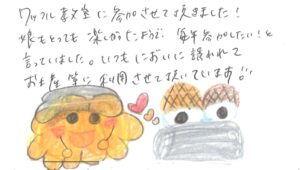 ワッフル教室に参加させて頂きました！
娘もとっても楽しかったようで、毎年参加したい！と
言っていました。いつもにおいに誘われて
お土産等に利用させて頂いています!!